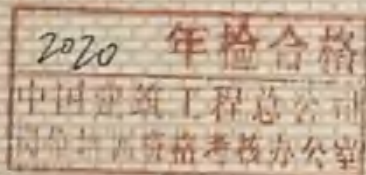 2020 年检合格
中国建筑工程总公司
岗位培训资格考核办公室